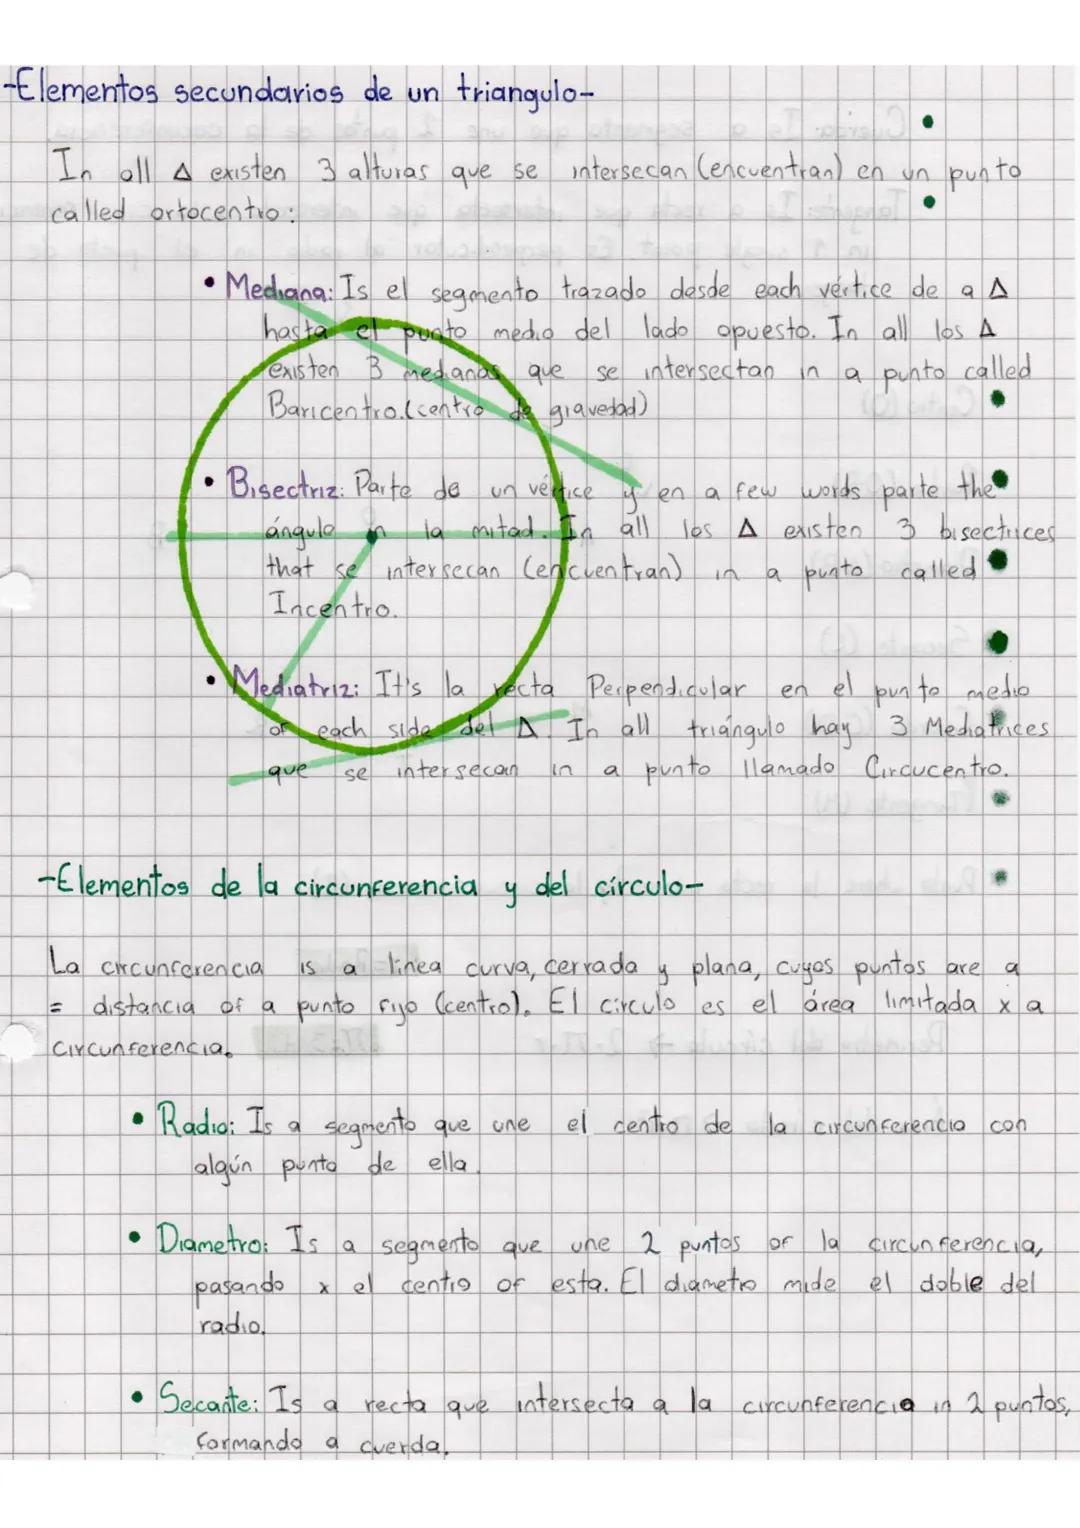 -Elementos secundarios de un triangulo-
In all Δ existen 3 alturas que se intersecan (encuentran) en un punto
called ortocentro:
• Mediana: Is el segmento trazado desde each vértice de a Δ
hasta el punto medio del lado opuesto. In all los Δ
existen 3 medianas que se intersectan in a punto called
Baricentro. (centro de gravedad)
• Bisectriz: Parte de un vértice y en a few words parte the
ángulo in la mitad. In all los Δ existen 3 bisectrices
that se intersecan (encuentran) in a punto called
Incentro.
• Mediatriz: It's la recta Perpendicular en el punto medio
of each side del Δ. In all triángulo hay 3 Mediatrices
que se intersecan in a punto llamado Circucentro.
-Elementos de la circunferencia y del círculo-
La circunferencia is a línea curva, cerrada y plana, cuyos puntos are a
= distancia of a punto fijo (centro). El circulo es el área limitada x a
circunferencia.
• Radio: Is a segmento que une el centro de la circunferencia con
algún punto de ella.
• Diametro: Is a segmento que une 2 puntos of la circunferencia,
pasando x el centro of esta. El diametro mide el doble del
radio.
• Secante: Is a recta que intersecta a la circunferencia in 2 puntos,
formando a cuerda.